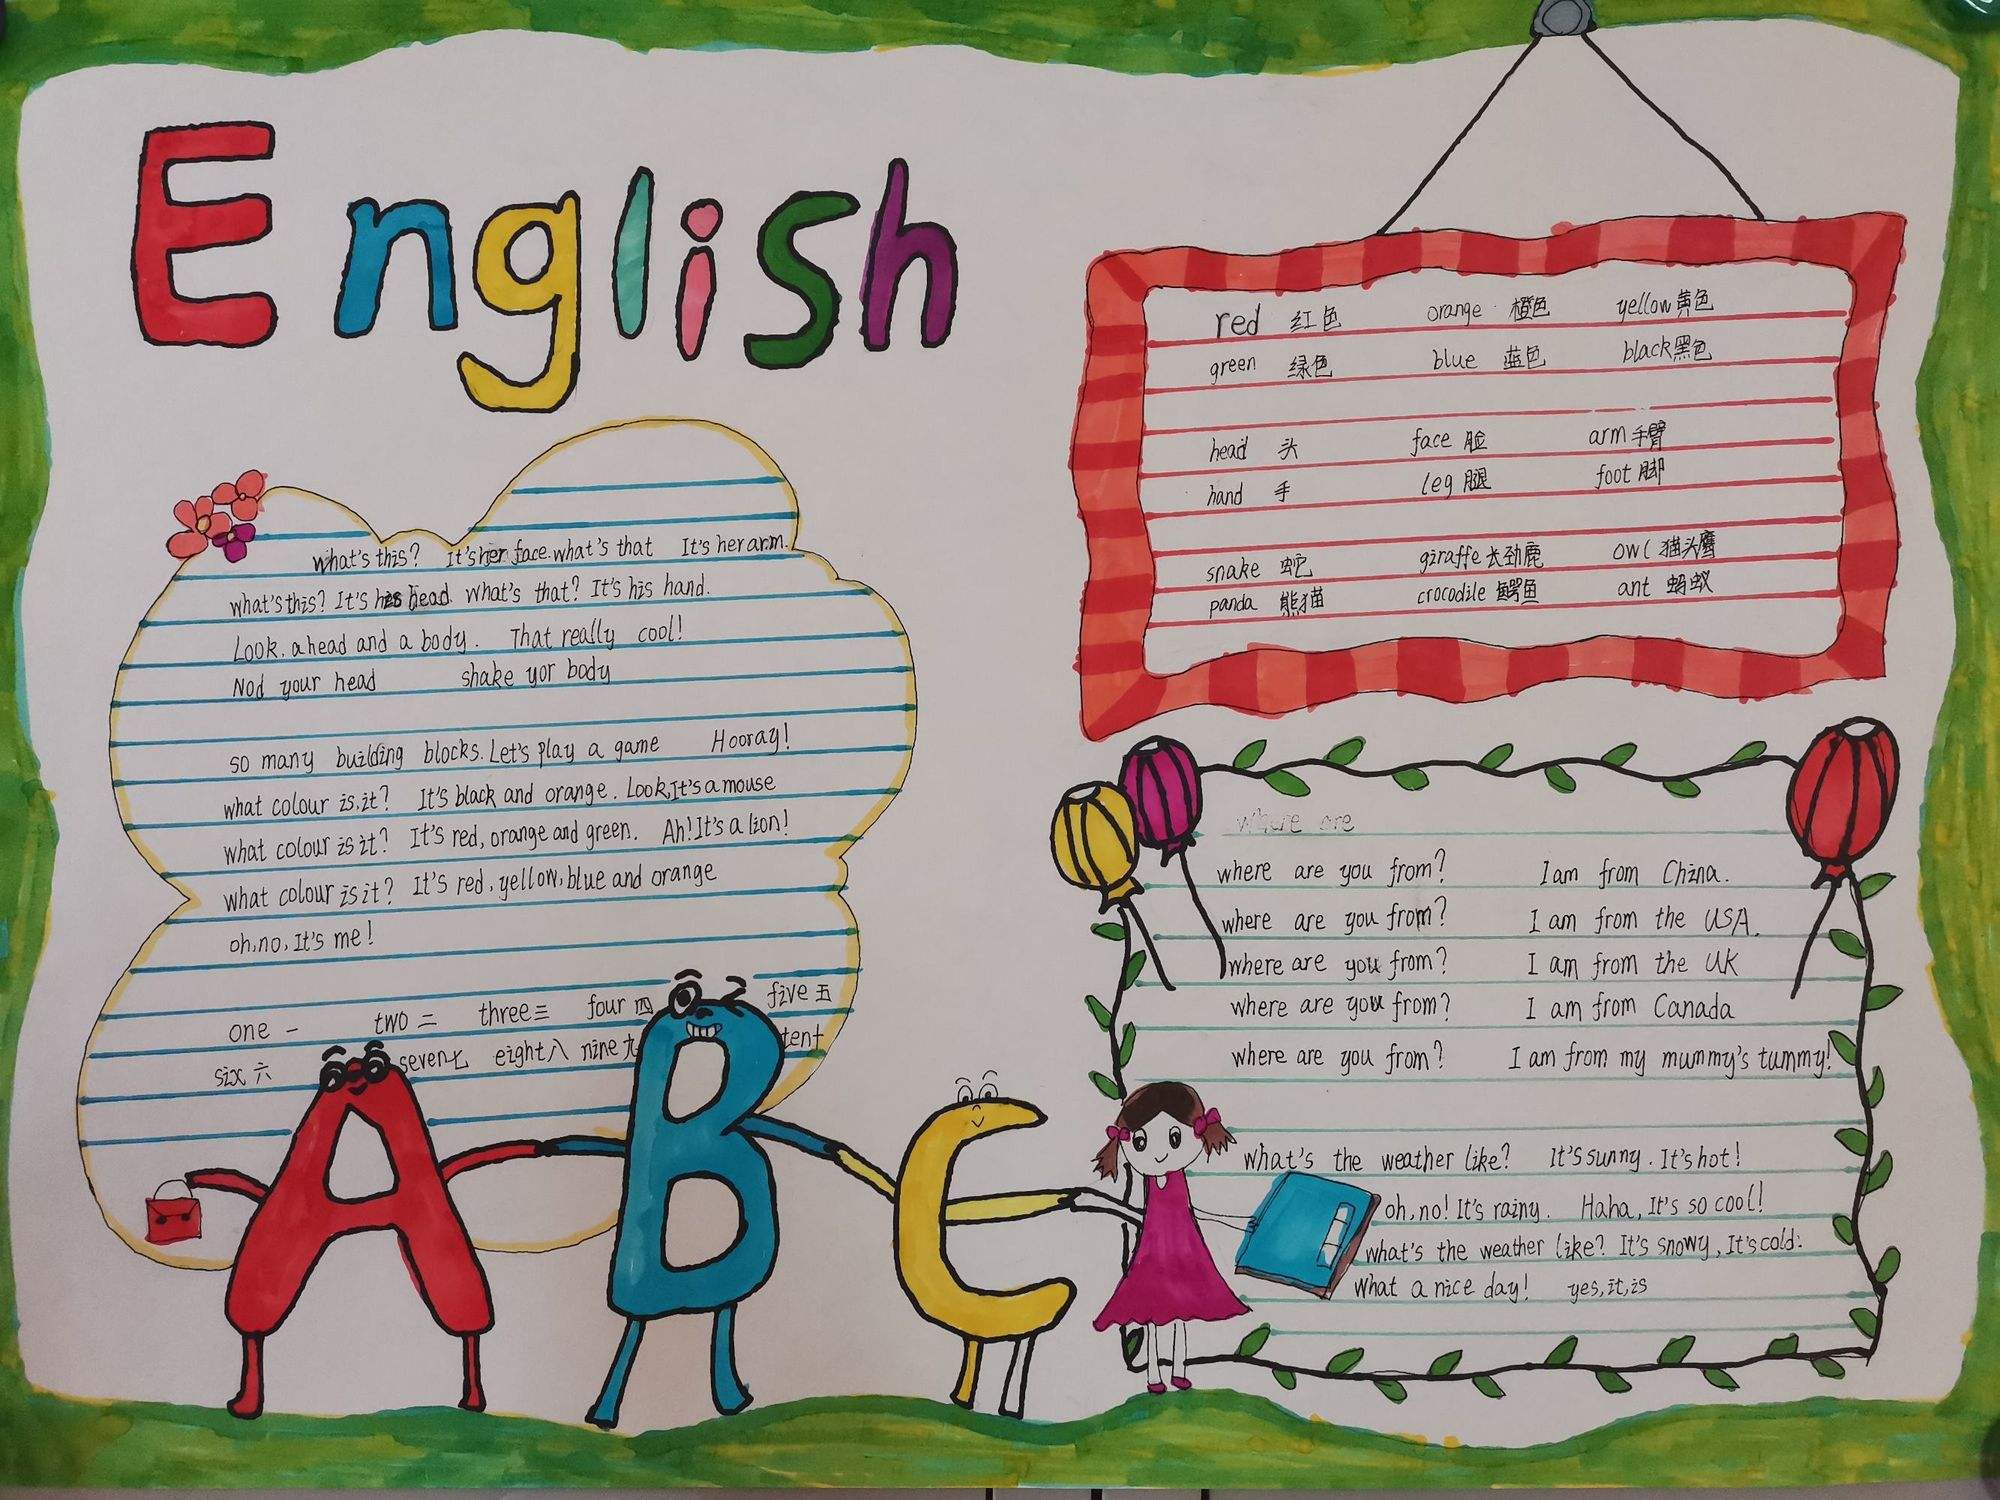 English
what's this? It's her face. what's that It's her arm.
what's this? It's his head. What's that? It's his hand.
Look, a head and a body. That really cool!
Nod your head shake yor body
so many building blocks. Let's play a game Hooray!
what colour is,it? It's black and orange. Look,It's a mouse
what colour is it? It's red, orange and green. Ah! It's a lion!
what colour is it? It's red, yellow, blue and orange
oh,no, It's me!
one 一 two 二 three 三 four 四 five 五
six 六 seven 七 eight 八 nine 九 ten十
A B C
red 红色 orange 橙色 yellow 黄色
green 绿色 blue 蓝色 black 黑色
head 头 face 脸 arm 手臂
hand 手 leg 腿 foot 脚
snake 蛇 giraffe 长劲鹿 owl 猫头鹰
panda 熊猫 crocodile 鳄鱼 ant 蚂蚁
where are
where are you from? I am from China.
where are you from? I am from the USA.
where are you from? I am from the UK
where are you from? I am from Canada
where are you from? I am from my mummy's tummy!
what's the weather like? It's sunny. It's hot!
oh, no! It's rainy. Haha, It's so cool!
what's the weather like? It's snowy, It's cold.
What a nice day! yes,it,is